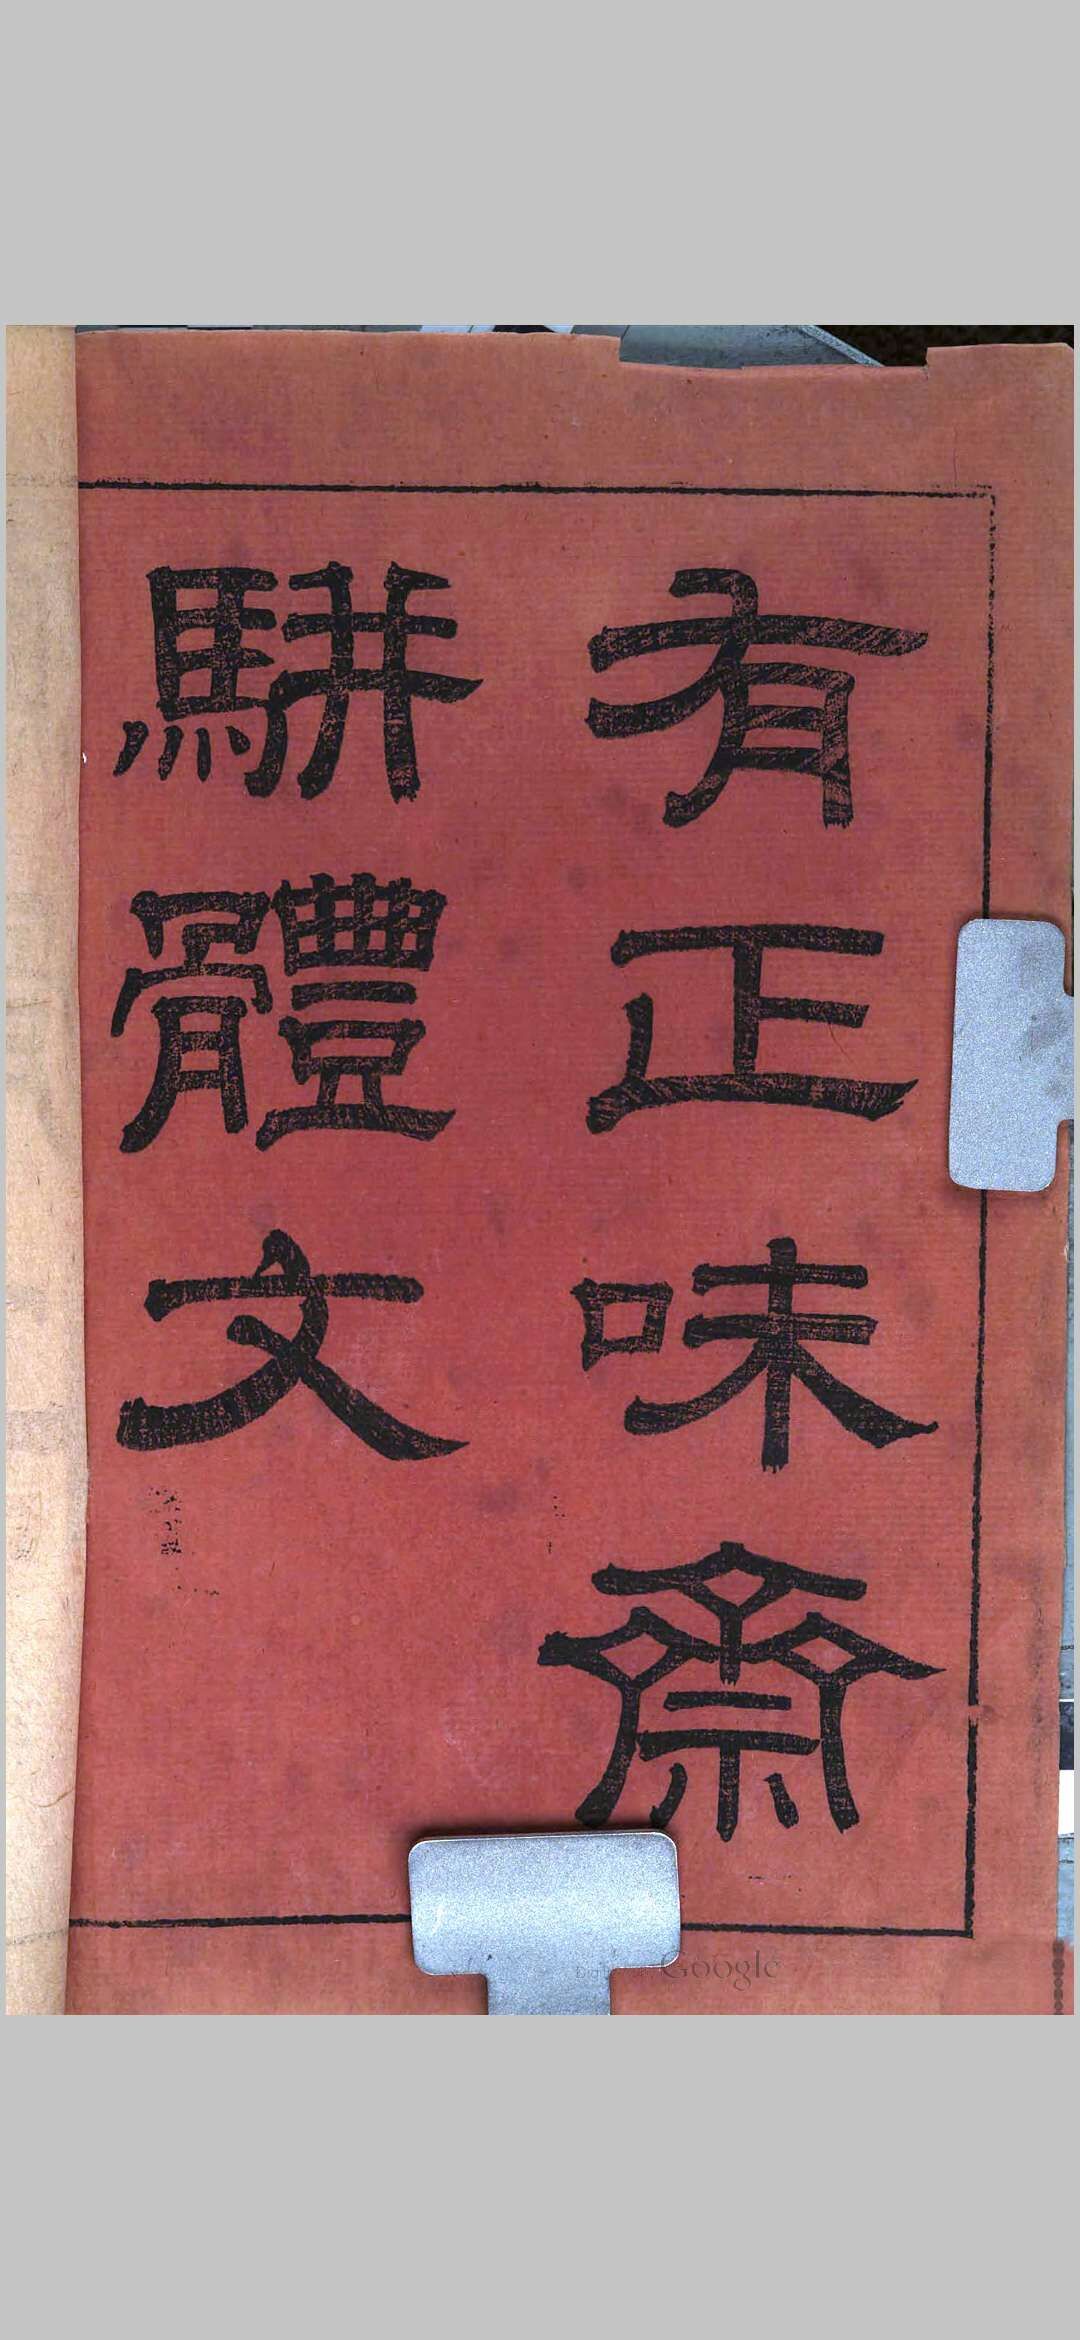 有正味齋
駢體文
Google